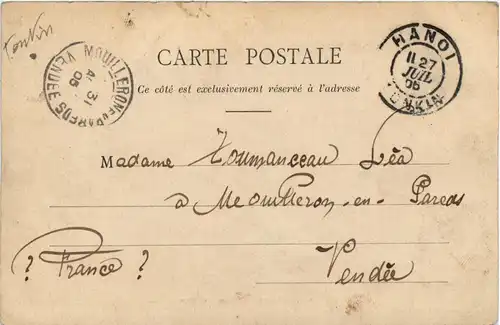 Tonkin
CARTE POSTALE
Ce côté est exclusivement réservé à l'adresse
MOUILLERON EN PAREDS VENDÉE
31
05
HANOI
11 27
JUIL
05
TONKIN
Madame Léa
à Mouilleron-en-Pareds
Vendée
? France ?